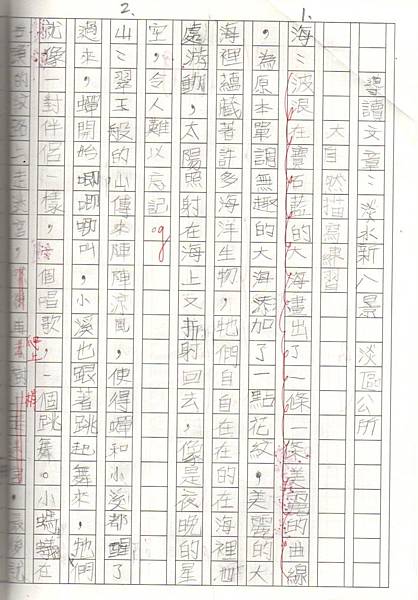 1.
2.
導讀文章：淡水新八景 淡區公所
大自然描寫練習
海：波浪在寶石藍的大海畫出了一條一條美麗的曲線
，為原本單調無趣的大海添加了一點花紋，美麗的大
海裡蘊藏著許多海洋生物，牠們自自在在的在海裡四
處游動，太陽照射在海上又折射回去，像是夜晚的星
空，令人難以忘記。
山：翠玉般的山傳來陣陣涼風，使得蟬和小溪都醒了
過來，蟬開始唧唧叫，小溪也跟著跳起舞來，牠們
就像一對伴侶一樣，一個唱歌，一個跳舞。小螞蟻在